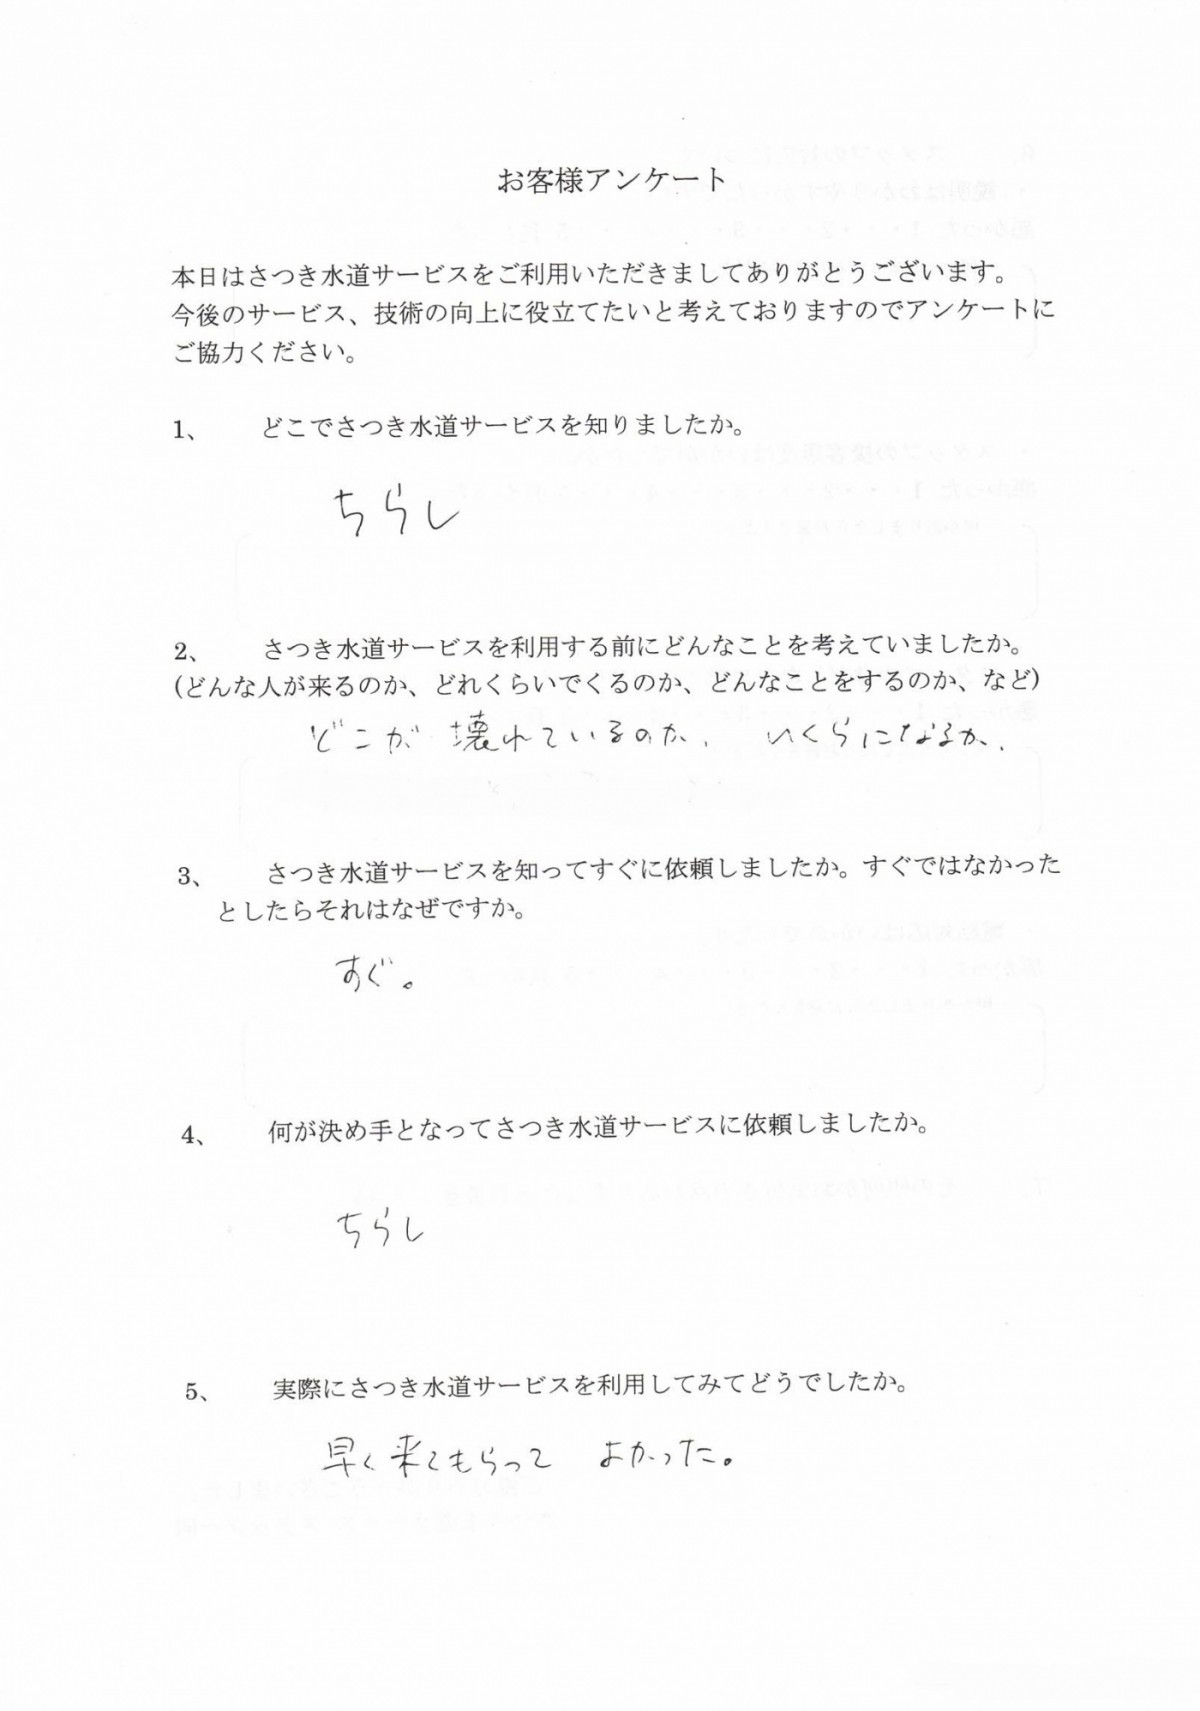 お客様アンケート
本日はさつき水道サービスをご利用いただきましてありがとうございます。
今後のサービス、技術の向上に役立てたいと考えておりますのでアンケートに
ご協力ください。
1、 どこでさつき水道サービスを知りましたか。
ちらし
2、 さつき水道サービスを利用する前にどんなことを考えていましたか。
(どんな人が来るのか、どれくらいでくるのか、どんなことをするのか、など)
どこが壊れているのか、 いくらになるか、
3、 さつき水道サービスを知ってすぐに依頼しましたか。すぐではなかった
としたらそれはなぜですか。
すぐ。
4、 何が決め手となってさつき水道サービスに依頼しましたか。
ちらし
5、 実際にさつき水道サービスを利用してみてどうでしたか。
早く来てもらって よかった。